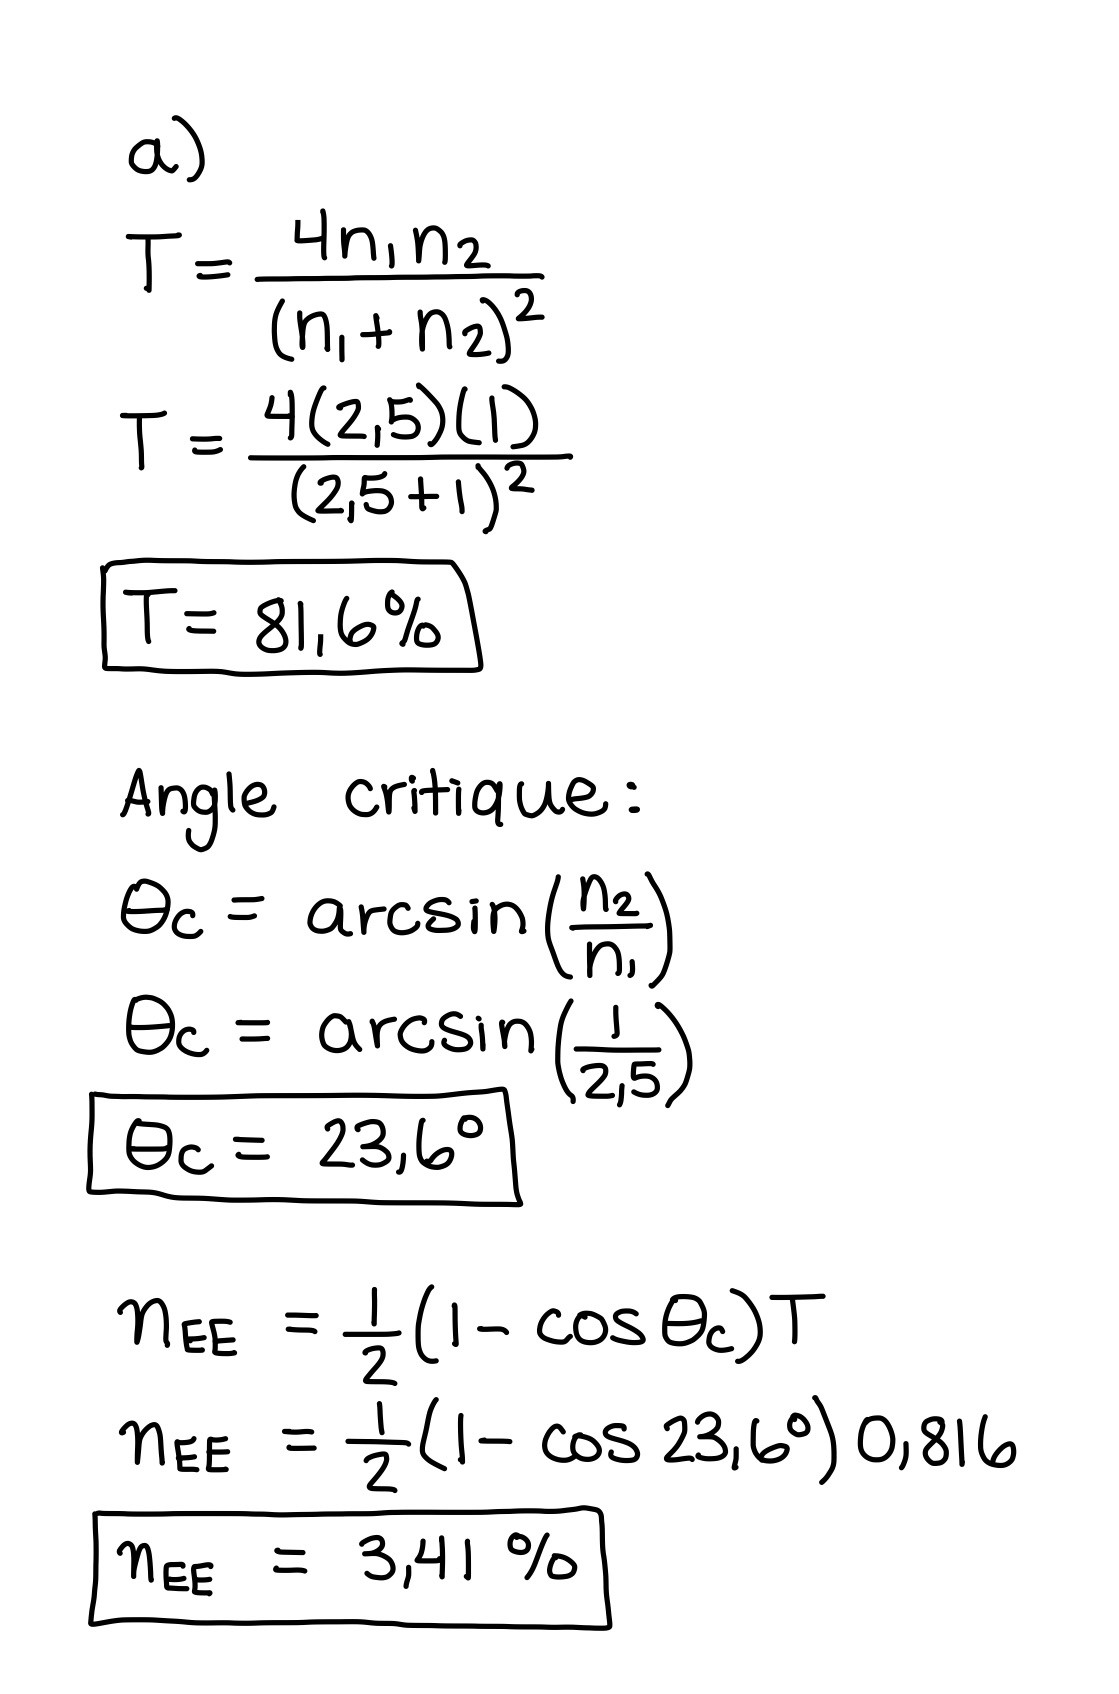 a)
T = 4n₁n₂ / (n₁ + n₂)²
T = 4(2,5)(1) / (2,5 + 1)²
T = 81,6%
Angle critique :
θc = arcsin (n₂ / n₁)
θc = arcsin (1 / 2,5)
θc = 23,6°
ηEE = 1/2 (1 - cos θc) T
ηEE = 1/2 (1 - cos 23,6°) 0,816
ηEE = 3,41 %